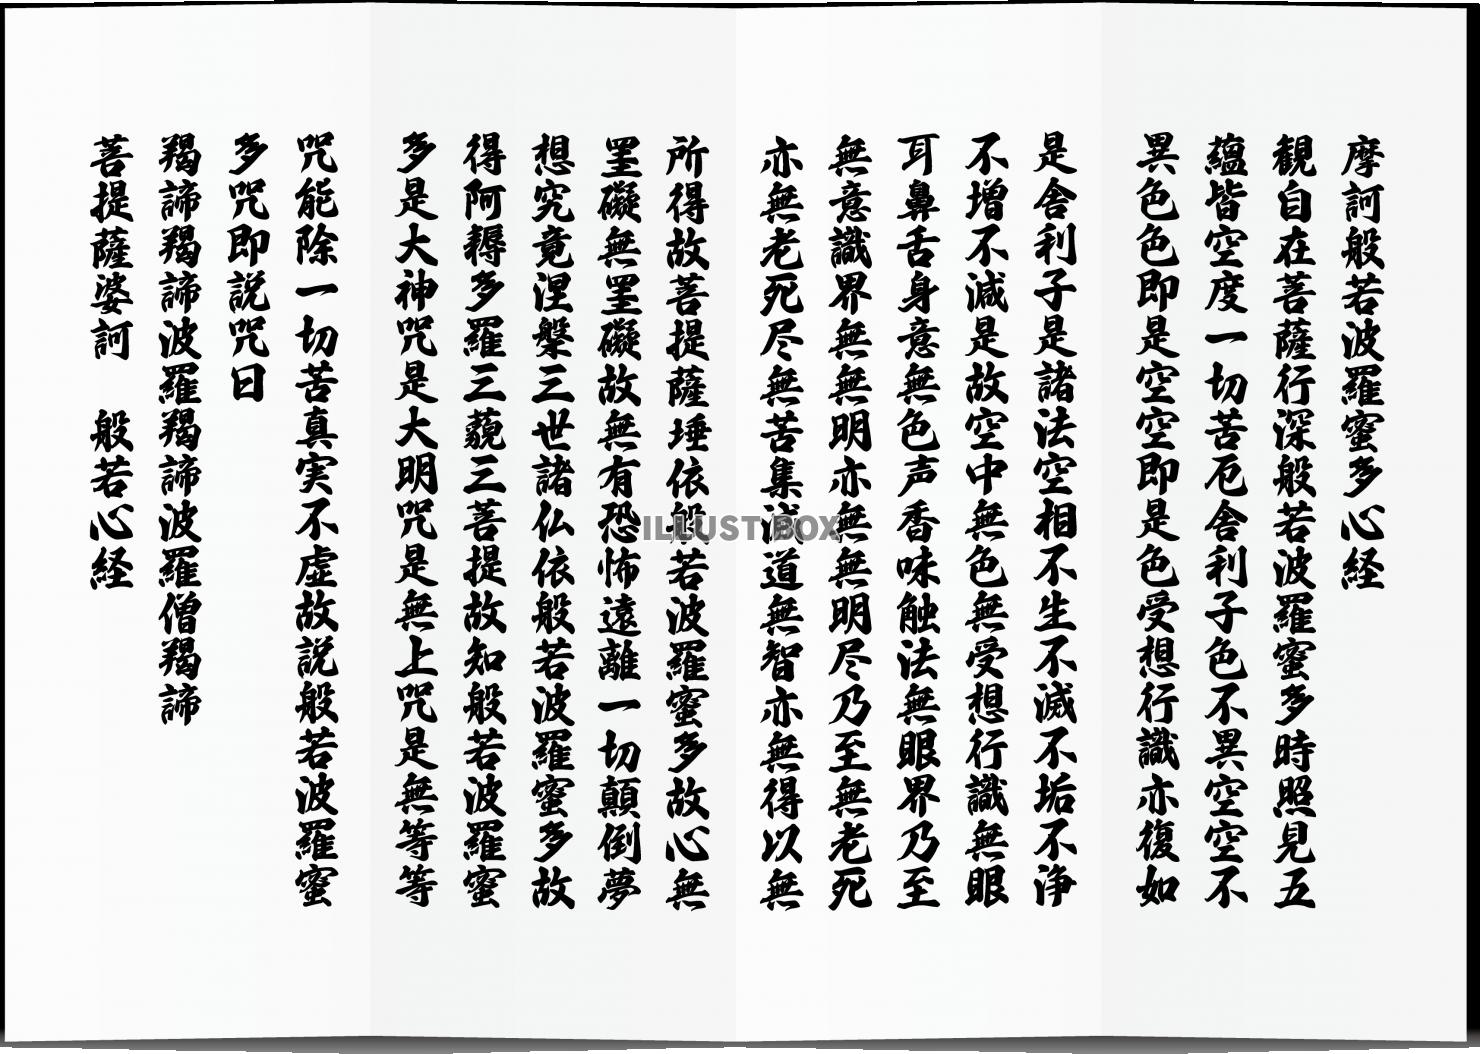 摩訶般若波羅蜜多心経
観自在菩薩行深般若波羅蜜多時照見五
蘊皆空度一切苦厄舎利子色不異空空不
異色色即是空空即是色受想行識亦復如
是舎利子是諸法空相不生不滅不垢不浄
不増不減是故空中無色無受想行識無眼
耳鼻舌身意無色声香味触法無眼界乃至
無意識界無無明亦無無明尽乃至無老死
亦無老死尽無苦集滅道無智亦無得以無
所得故菩提薩埵依般若波羅蜜多故心無
罣礙無罣礙故無有恐怖遠離一切顛倒夢
想究竟涅槃三世諸仏依般若波羅蜜多故
得阿耨多羅三藐三菩提故知般若波羅蜜
多是大神咒是大明咒是無上咒是無等等
咒能除一切苦真実不虚故説般若波羅蜜
多咒即説咒曰
羯諦羯諦波羅羯諦波羅僧羯諦
菩提薩婆訶　般若心経
ILLUST BOX